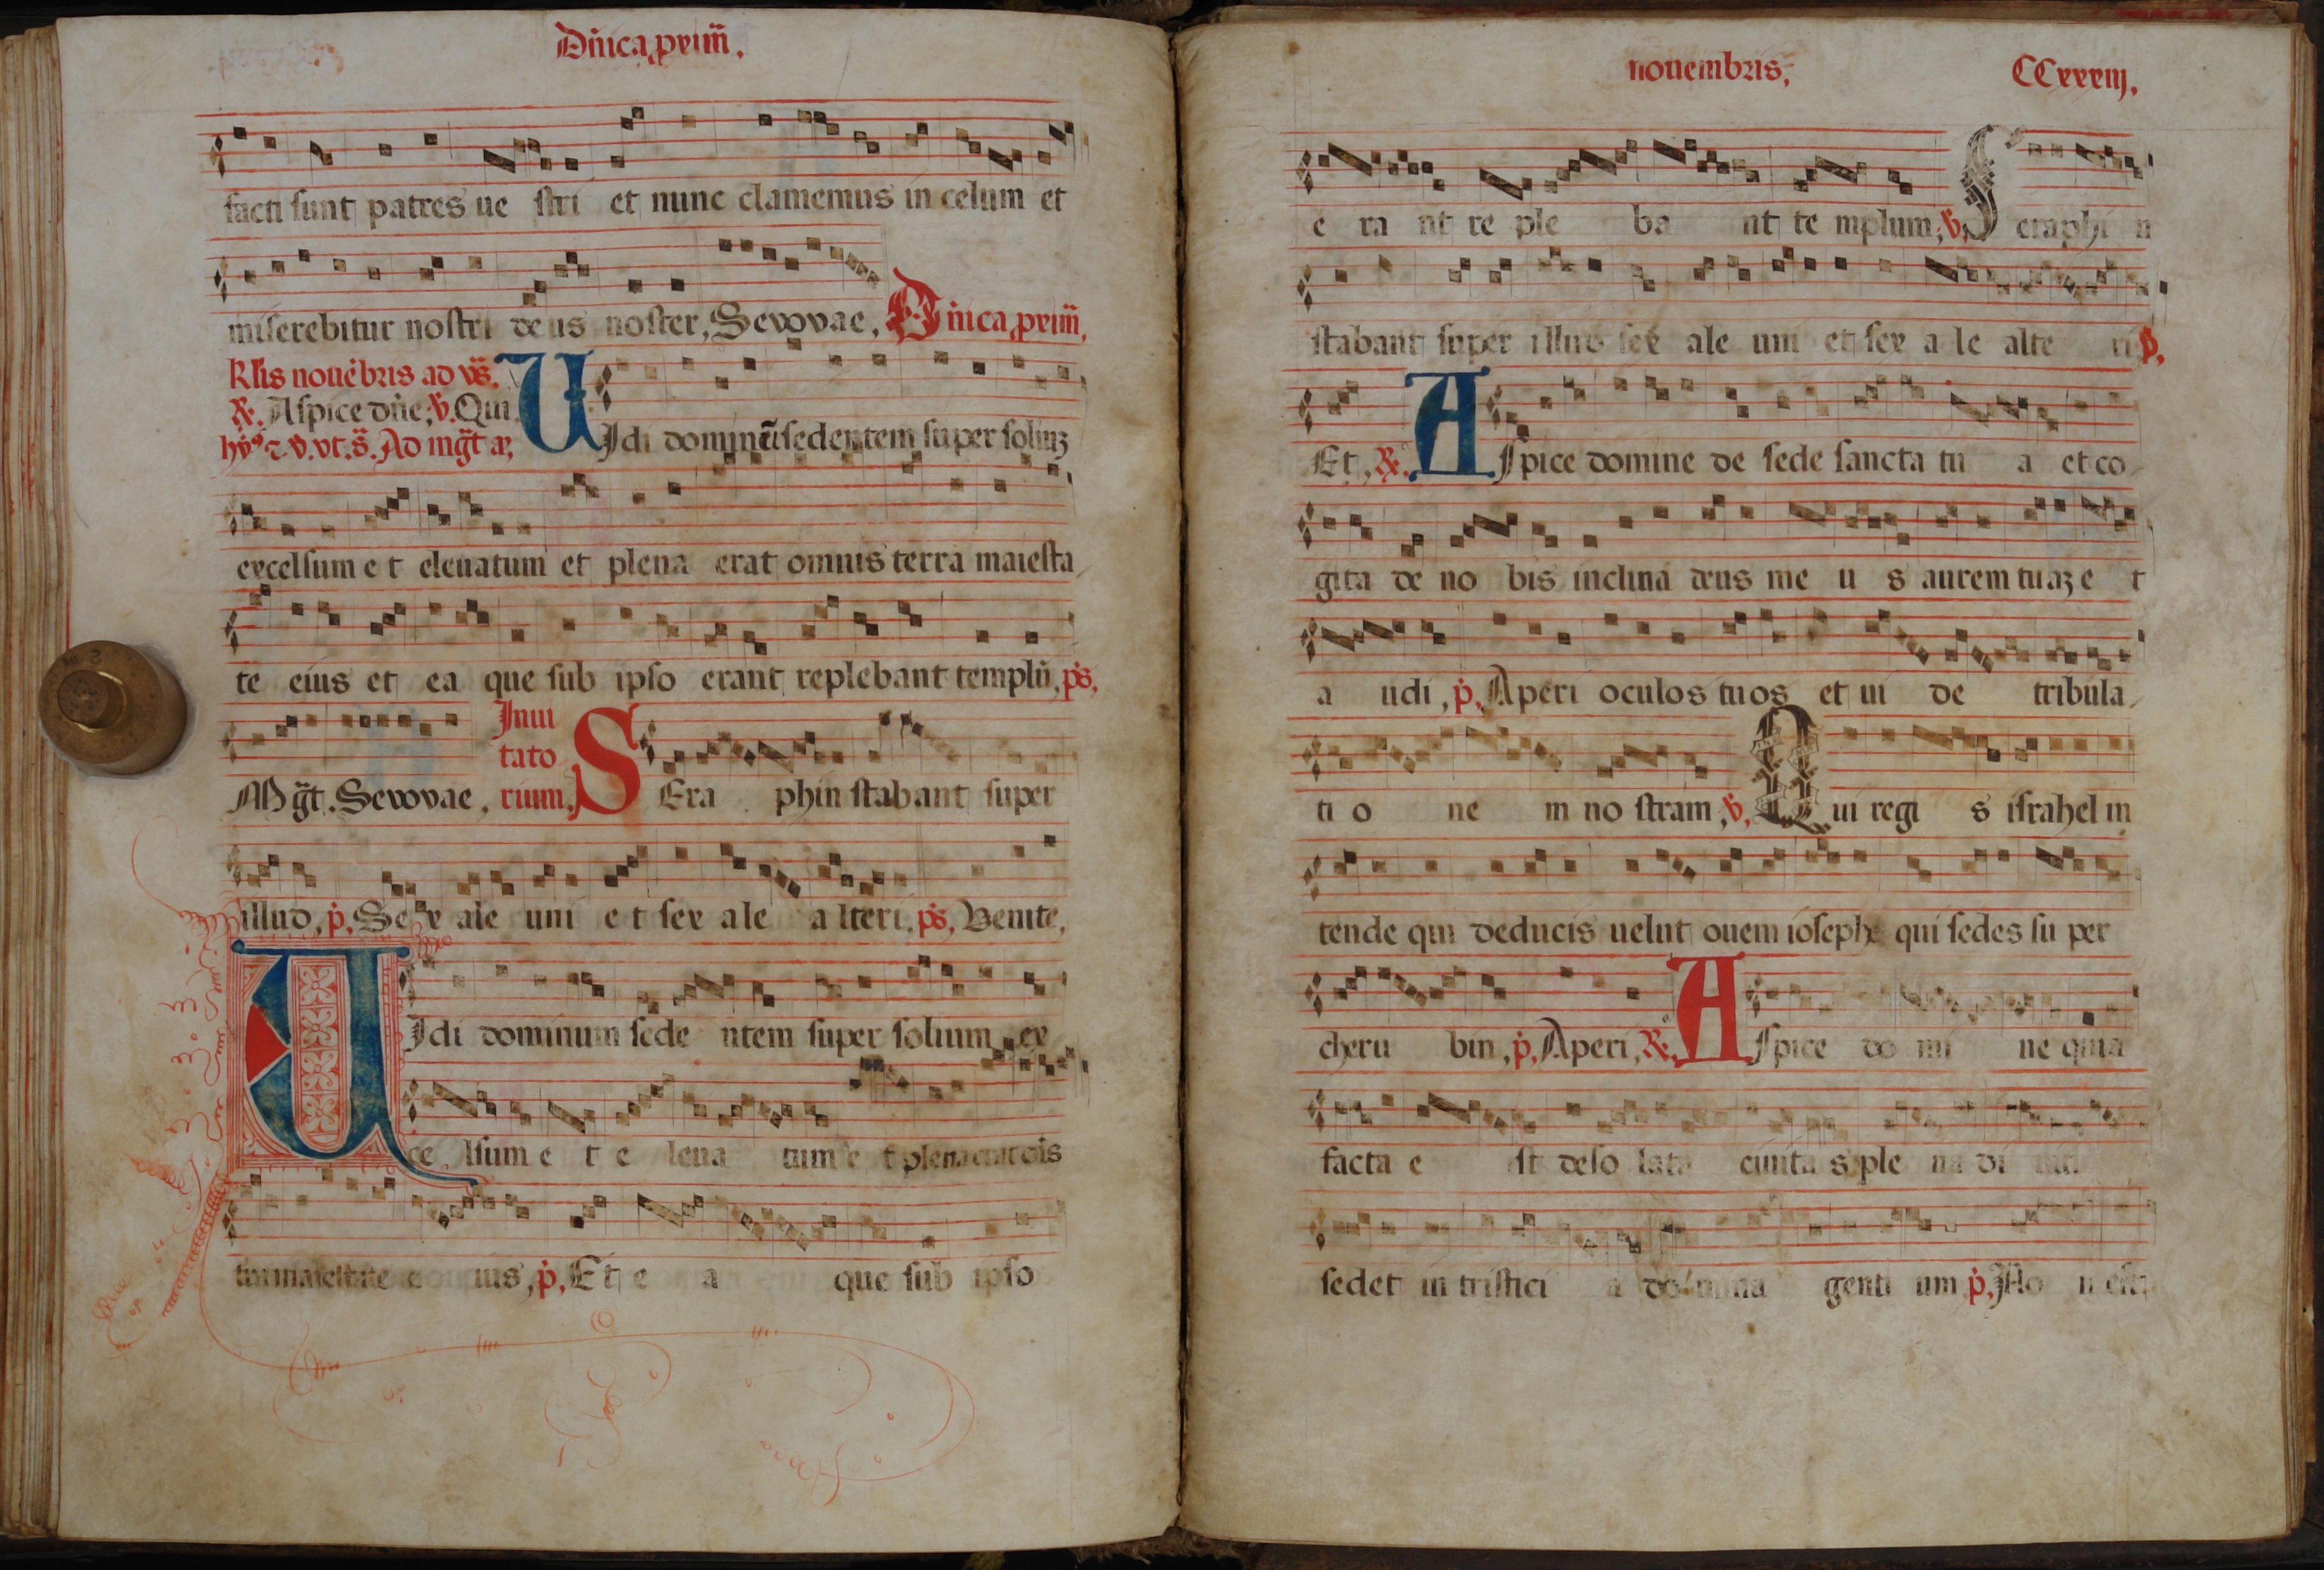 Dn̄ica prim̄.
facti sunt patres ue stri et nunc clamemus in celum et
miserebitur nostri deus noster, Seuouae, Dn̄ica prim̄,
Kl̄is nouēbris ad vs̄.
R. Aspice dn̄e; V. Qui
hȳs ⁊ v. vt. s̄. Ad mḡt a,
UIdi dominū sedentem super soliuꝫ
excelsum e t eleuatum et plena erat omnis terra maiesta
te eius et ea que sub ipso erant replebant templū, ps,
Mḡt. Seuouae, Inui
tato
rium,
SEra phin stabant super
illud, p, Sex ale uni e t sex ale a lteri, ps, Uenite,
UIdi dominum sede ntem super solium ex
ce lsum e t e leua tum e t plena erat ois
maiestate e ius, p, Et e a que sub ipso
nouembris,
CCxxxiij,
e ra nt re ple ba nt te mplum, V, Seraphi n
stabant super illud sex ale uni et sex a le alte ri p,
Et, R, ASpice domine de sede sancta tu a et co
gita de no bis inclina deus me u s aurem tuaꝫ e t
a udi, p, Aperi oculos tuos et ui de tribula
ti o ne m no stram, V, Qui regi s israhel in
tende qui deducis uelut ouem ioseph qui sedes su per
cheru bin, p, Aperi, R, ASpice do mi ne quia
facta e st deso lata ciuitas ple na di
sedet in tristici a domina genti um p, No n est